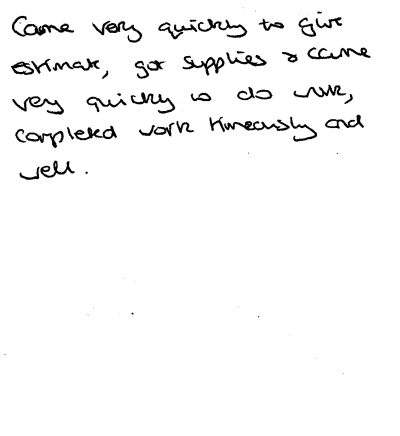 Came very quickly to give
estimate, got supplies & came
very quickly to do work,
completed work timeously and
well.